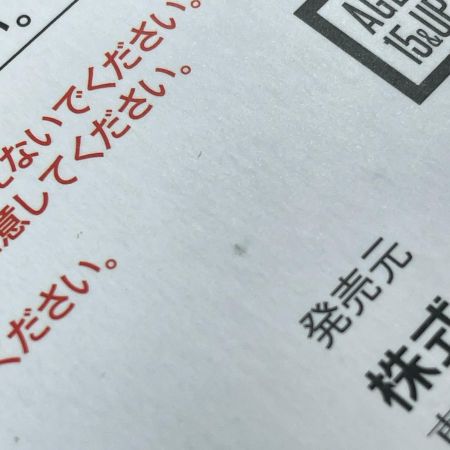 い。
えないでください。
意してください。
ください。
AGE
15&UP
発売元
株式